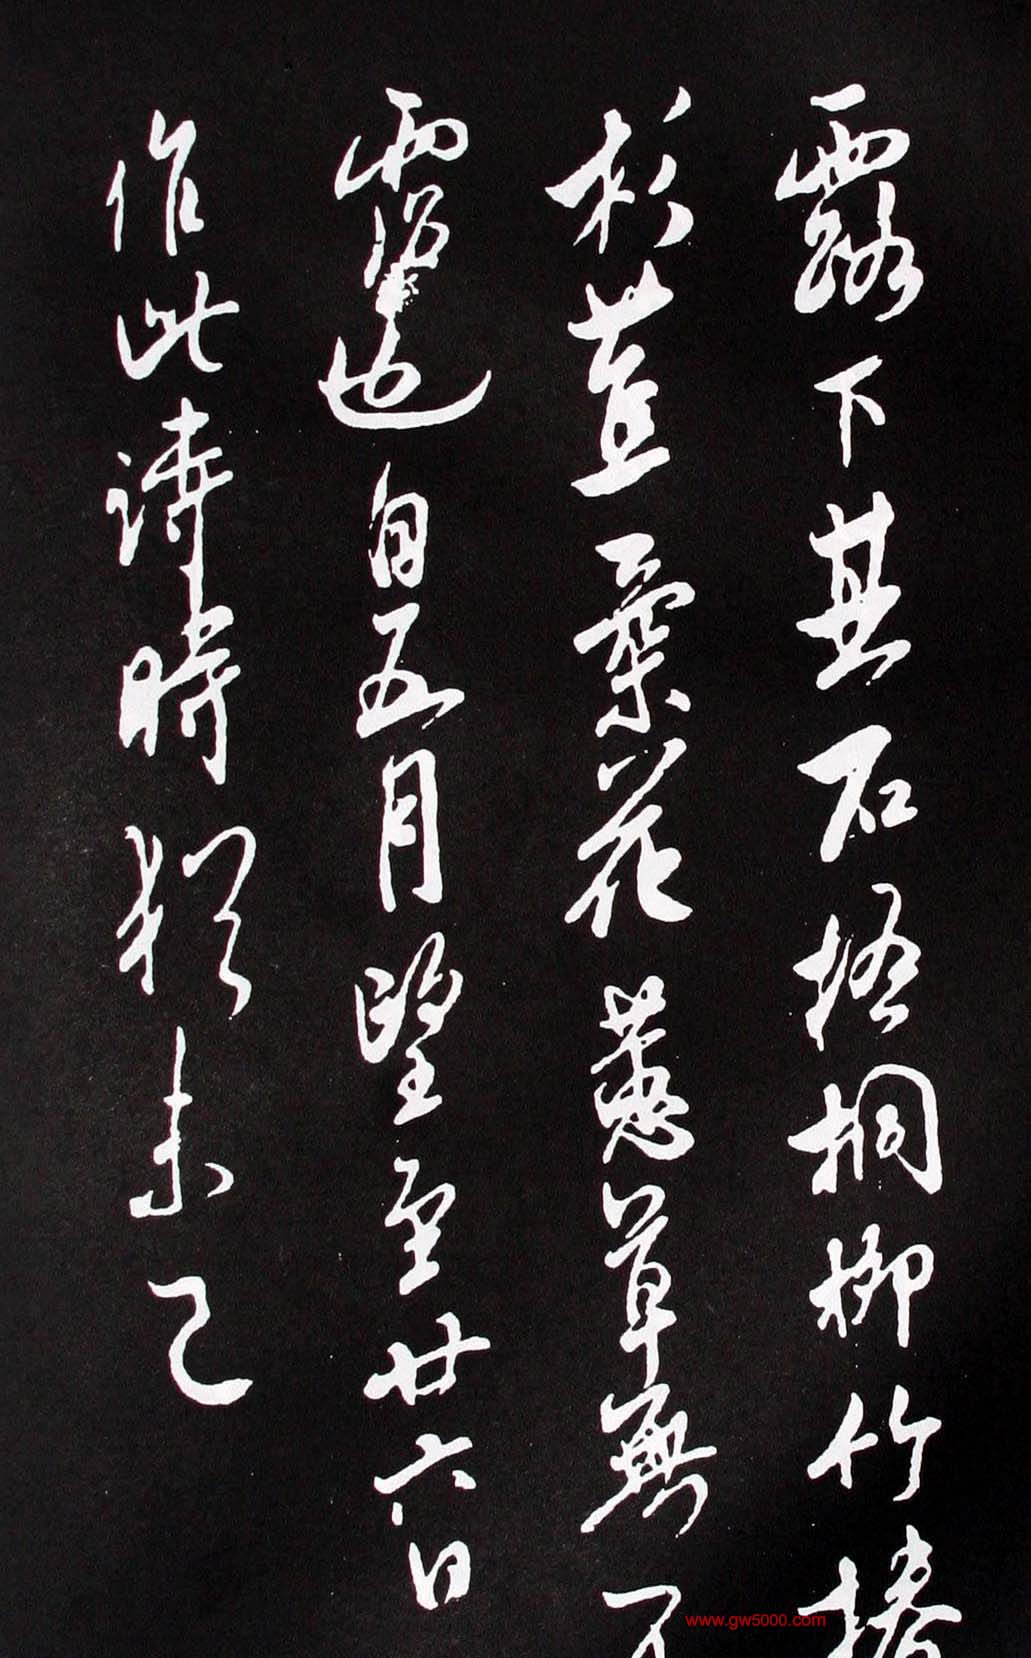 露下其石梧桐柳竹椿
杉苴葉花蕊草無不
霑也自五月望至廿六日
作此詩時猶未已
www.gw5000.com